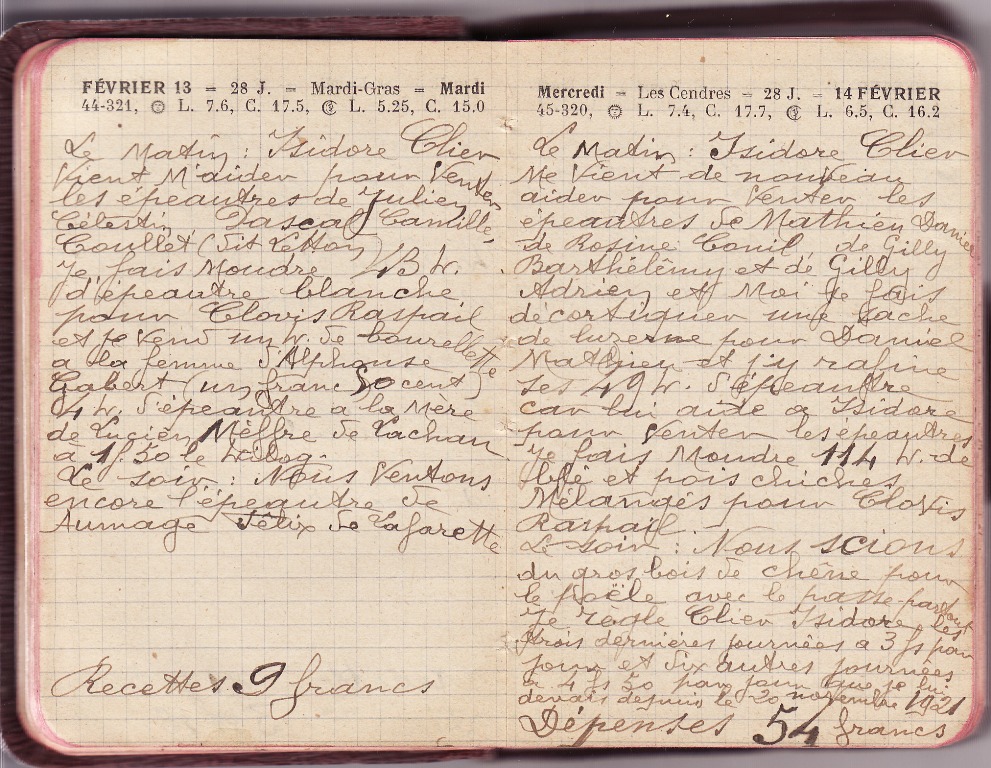 FÉVRIER 13 = 28 J. – Mardi-Gras = Mardi
44-321, L. 7.6, C. 17.5, L. 5.25, C. 15.0
Le Matin : Isidore Clier
Vient M'aider pour Venter
les épeautres de Julien,
Célestin, Pascal Camille,
Coullet (dit
Je fais Moudre K.
d'épeautre blanche
pour Clovis Raspail
et je Vend un K. de bourellette
a la femme d'Alphonse
Gabert (un franc 50 cent)
4 K. d'épeautre a la Mère
de Lucien Mèffre de Lachau
a 1f.50 le kilog.
Le soir : Nous Ventons
encore l'épeautre de
Aumage Félix de Lafarette
Recettes 9 francs
Mercredi – Les Cendres – 28 J. – 14 FÉVRIER
45-320, L. 7.4, C. 17.7, L. 6.5, C. 16.2
Le Matin : Isidore Clier
Me Vient de nouveau
aider pour Venter les
épeautres de Mathieu Daniel
de Rosine Conil de Gilly
Barthélêmy et de Gilly
Adrien et Moi je fais
décortiquer une
de luzerne pour Daniel
Mathieu et j'y rafine
ses 49 K. d'épeautre
car lui aide a Isidore
pour Venter les épeautres
Je fais Moudre 114 K. de
blé et pois chiches
Mélangés pour Clovis
Raspail
Le soir : Nous scions
du gros bois de chêne pour
le poële avec le passe-partout
Je règle Clier Isidore les
trois dernières journées a 3 fs par
jour et dix autres journées
a 4 fs 50 par jour que je lui
devais depuis le 20 novembre 1921
Dépenses 54 francs